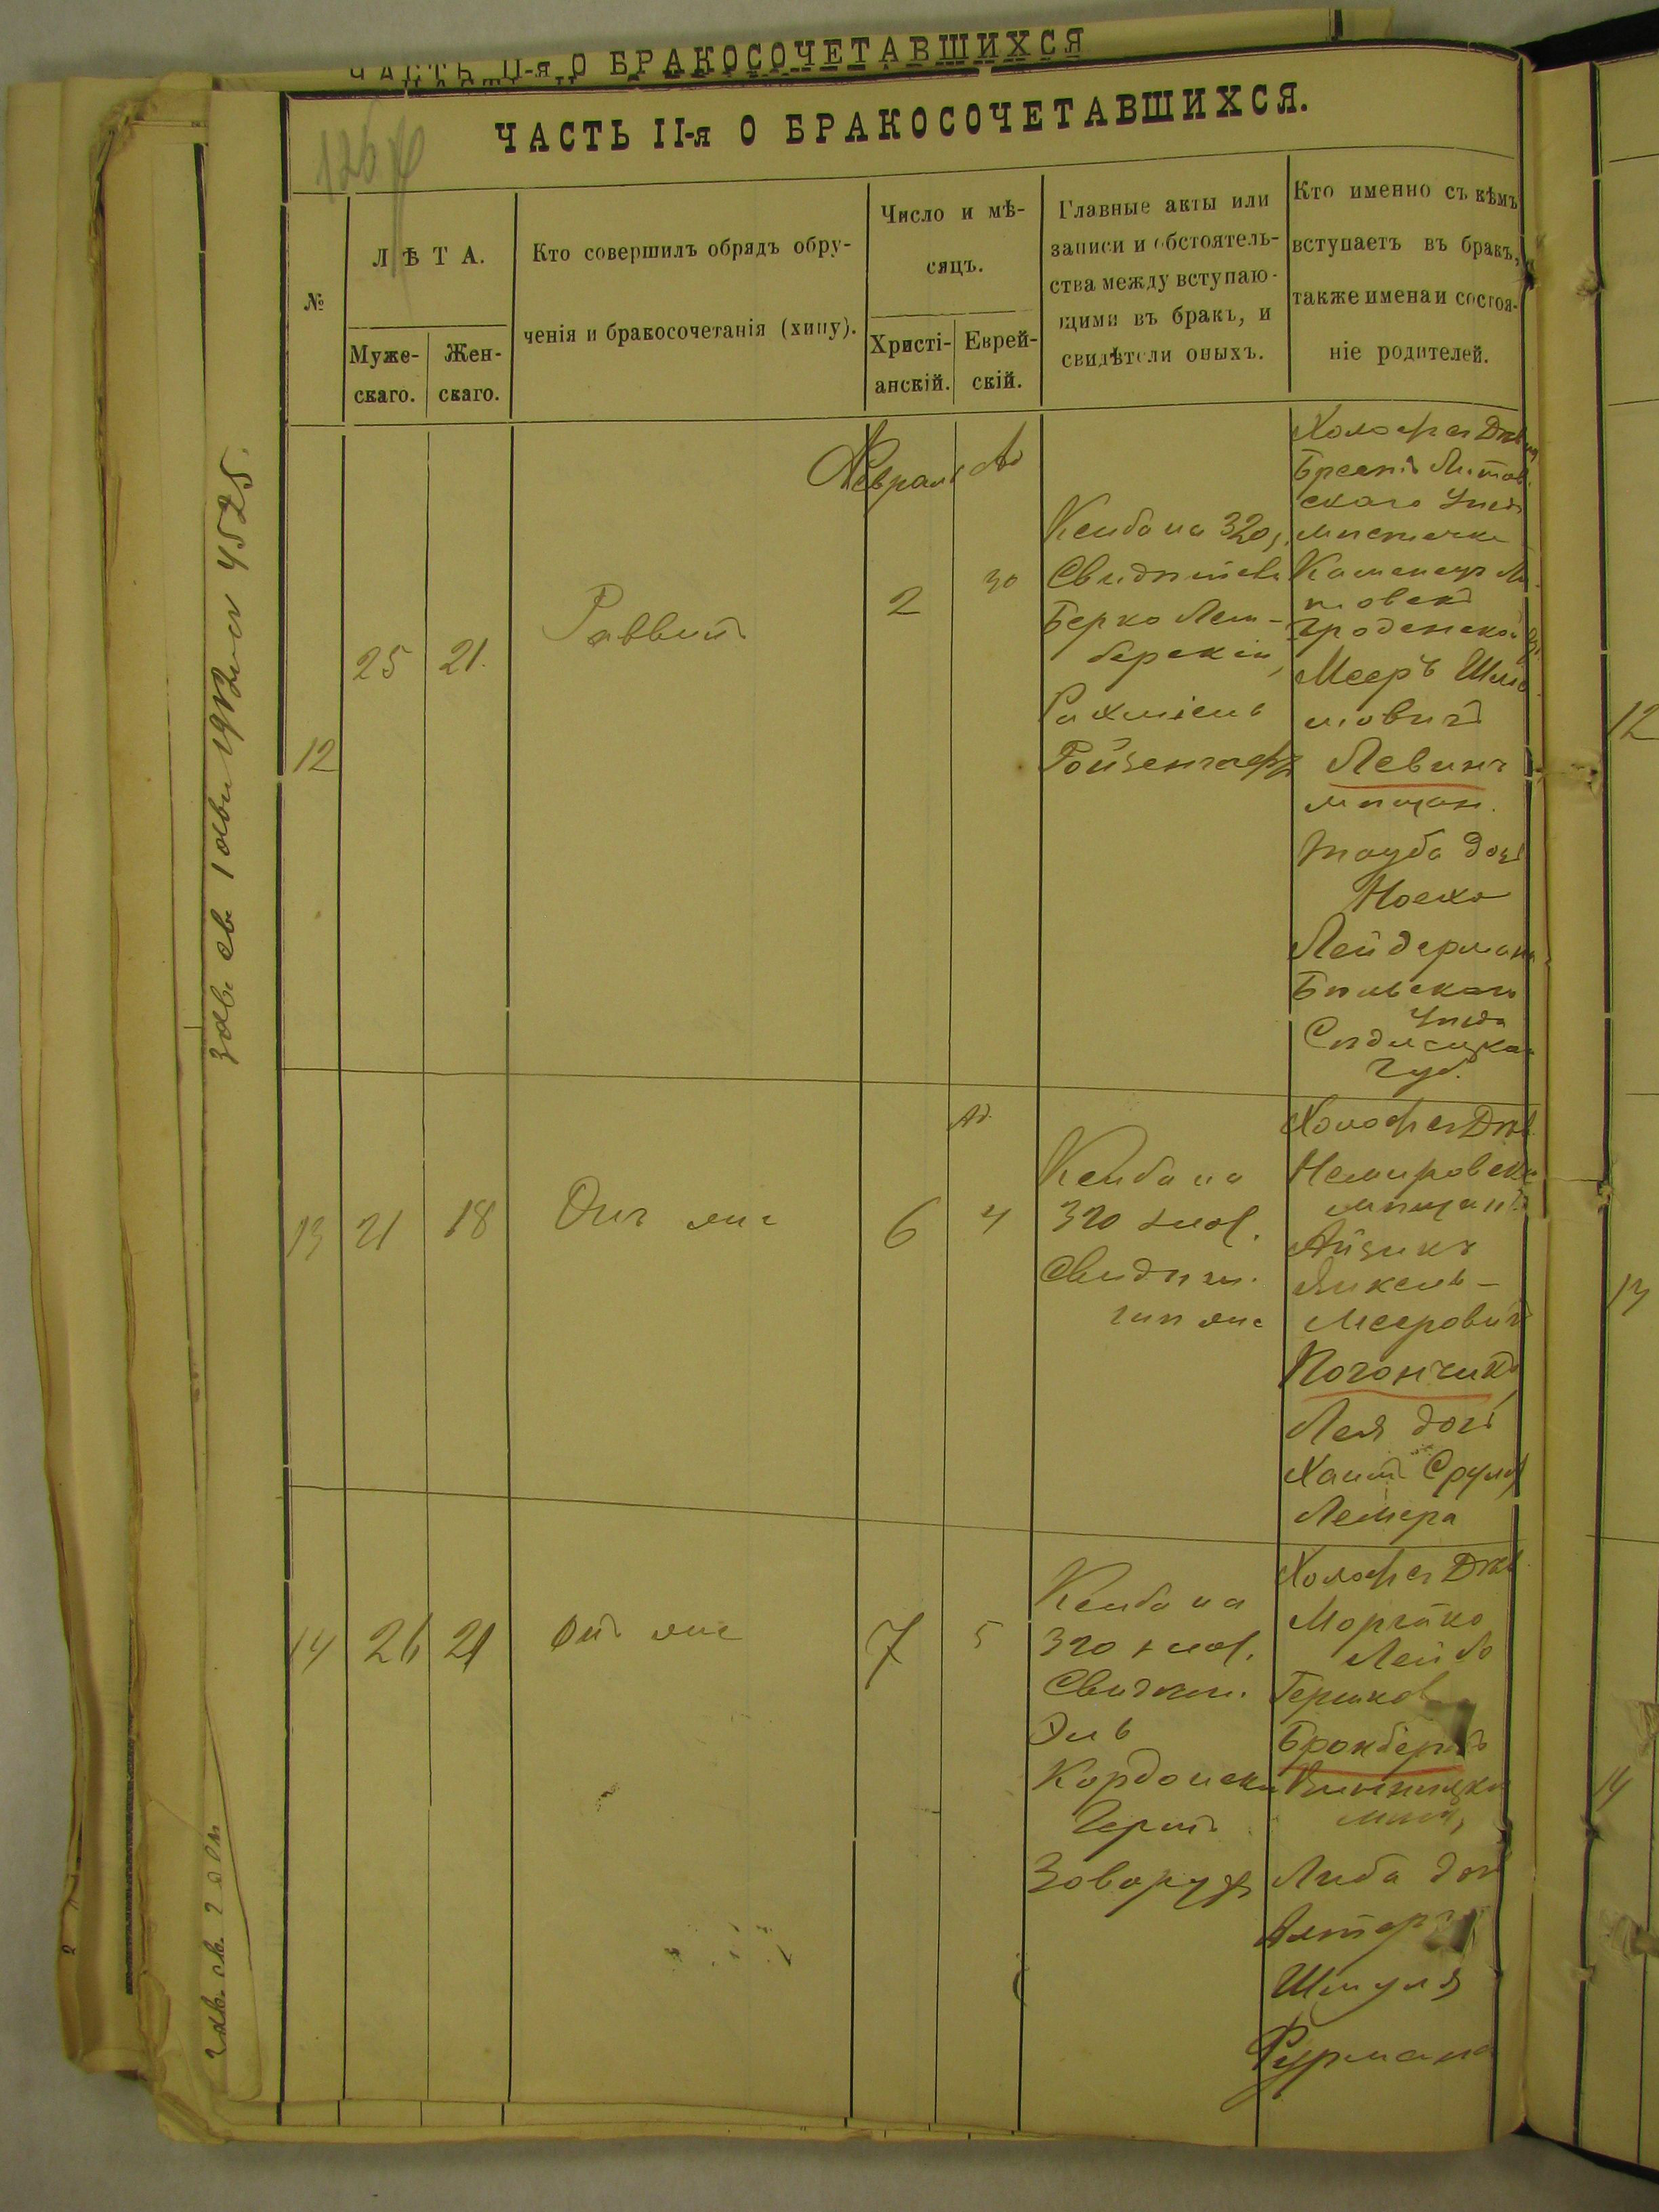 ЧАСТЬ II-я О БРАКОСОЧЕТАВШИХСЯ
ЧАСТЬ II-я О БРАКОСОЧЕТАВШИХСЯ.
126
№
ЛѢТА.
Муже-
скаго.
Жен-
скаго.
Кто совершилъ обрядъ обру-
ченія и бракосочетанія (хипу).
Число и мѣ-
сяцъ.
Христі-
анскій.
Еврей-
скій.
Главные акты или
записи и обстоятель-
ства между вступаю-
щими въ бракъ, и
свидѣтели оныхъ.
Кто именно съ кѣмъ
вступаетъ въ бракъ,
также имена и состоя-
ніе родителей.
12
25
21.
Раввинъ
Февраль
2
Ад
30
Кенба на 320
Свидѣтели
Берко Лем-
берскій,
Рахміель
Ройзенгафъ
Холост съ Дѣв
Брестъ Литов
скаго Уѣзд
мѣстечка
Каменецъ Ли
товскъ
Гродненской
Мееръ Шмо
мовичъ
Левинъ
мѣщан.
Тауба дочь
Носха
Лейдермана
Бѣльскаго
Уѣзда
Сѣдлецкая
Губ.
13
21
18
Онъ же
6
Ад.
4
Кенба на
320 злот.
Свидѣт.
тѣ же
Холост съ Дѣв
Немировск
мѣщанъ
Айзикъ
Янкель-
Меерович
Погончикъ
Лея дочь
Хаим Сруля
Лемера
14
26
21
Онъ же
7
5
Кенба на
320 злот.
Свидѣт.
Эль
Кордонски
Герш
Заваруха
Холост съ Дѣв
Мортко
Лейб
Гершков
Бронберг
Винницки
мѣщ,
Либа доч
Алтер
Шмуля
Фурмана
12
13
14